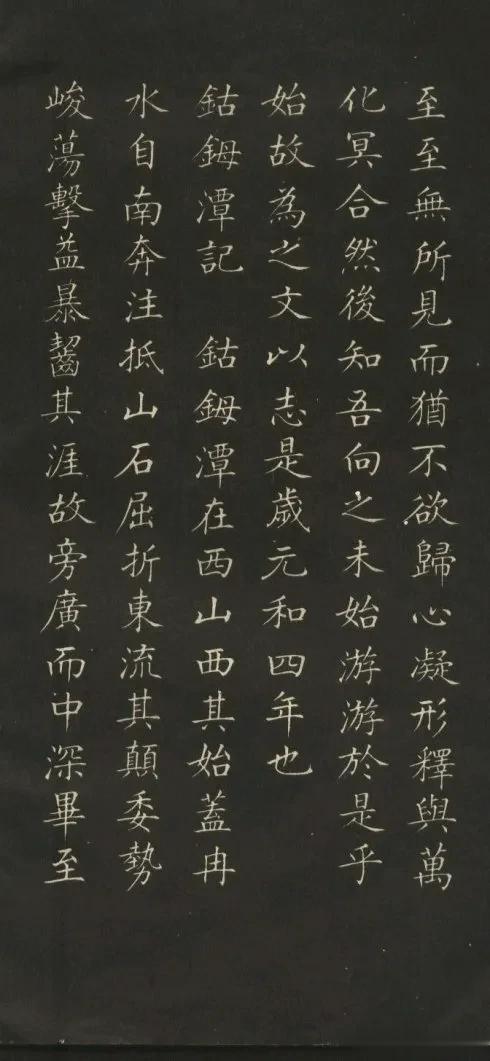 至至無所見而猶不欲歸心凝形釋與萬
化冥合然後知吾向之未始游游於是乎
始故為之文以志是歲元和四年也
鈷鉧潭記　鈷鉧潭在西山西其始蓋冉
水自南奔注抵山石屈折東流其顛委勢
峻蕩擊益暴齧其涯故旁廣而中深畢至